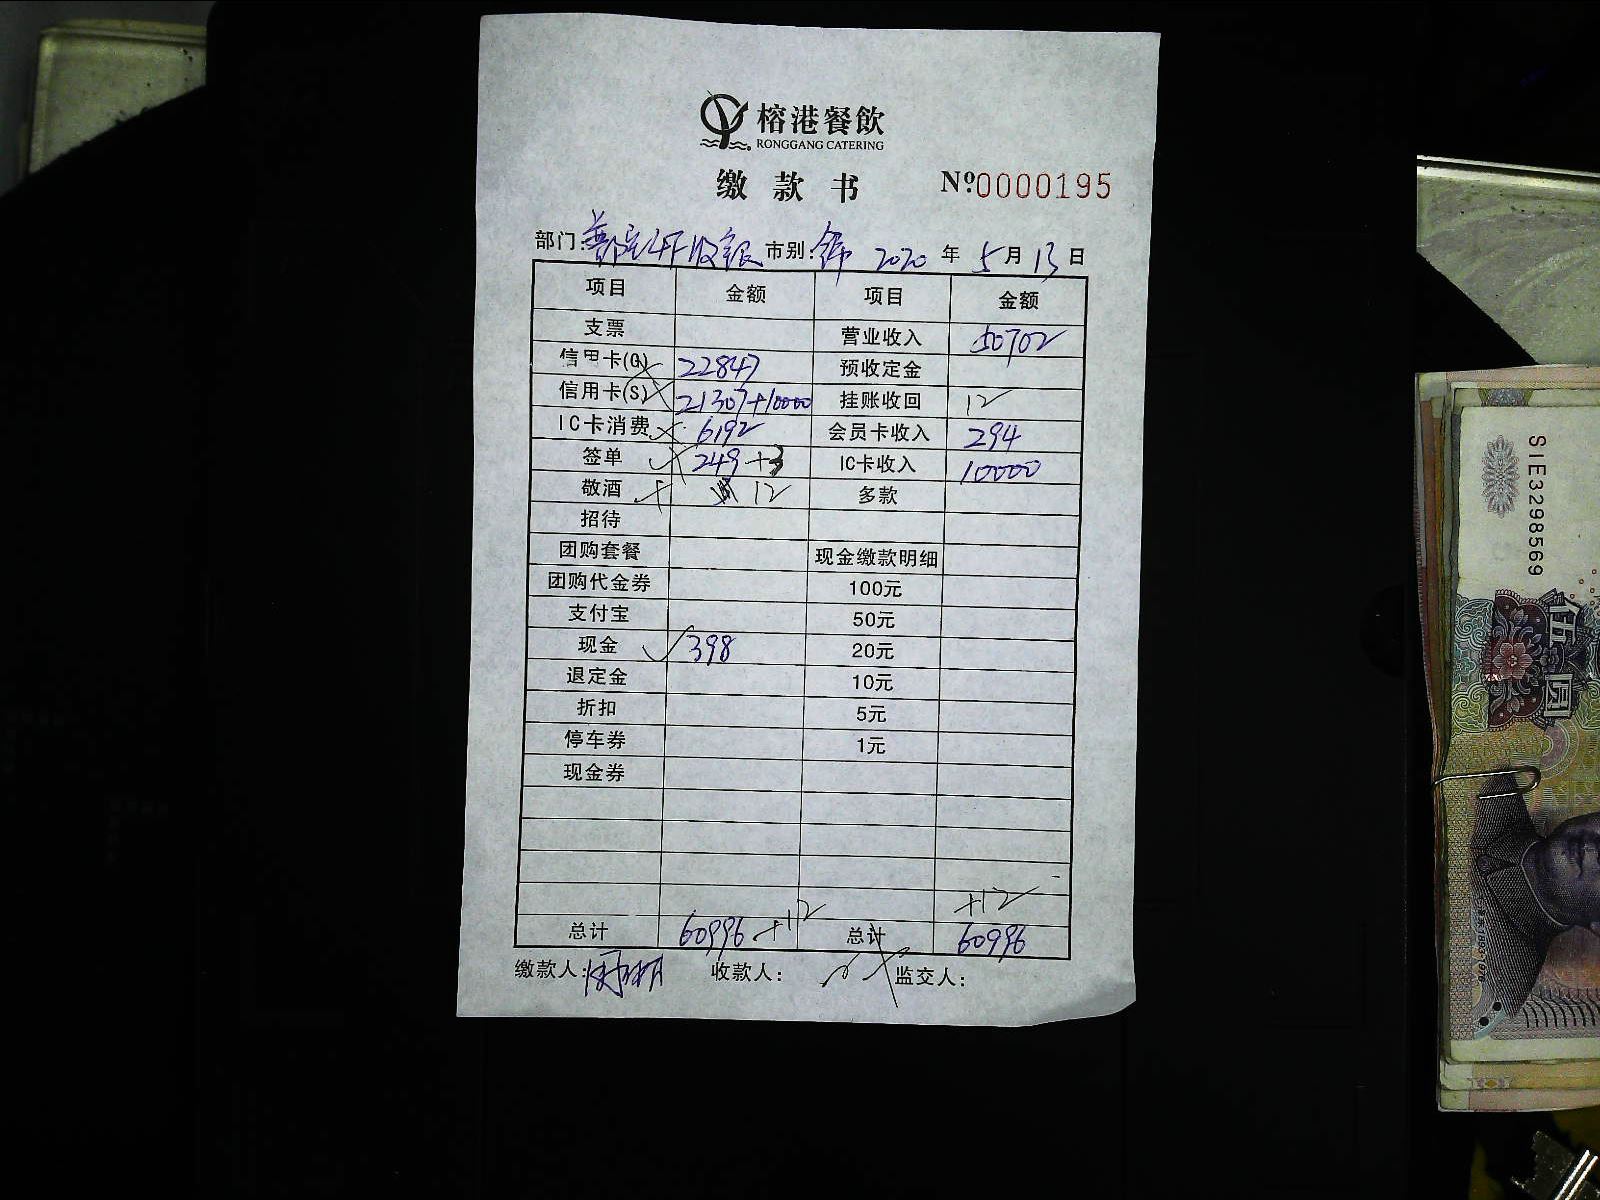 榕港餐飲
RONGGANG CATERING
缴款书 №0000195
部门: 市别: 2020 年 5 月 13 日
项目 金额 项目 金额
支票 营业收入 50702
信用卡(G) 22847 预收定金
信用卡(S) 21307+10000 挂账收回 12
IC卡消费 6192 会员卡收入 294
签单 249+3 IC卡收入 10000
敬酒 12 多款
招待
团购套餐 现金缴款明细
团购代金券 100元
支付宝 50元
现金 398 20元
退定金 10元
折扣 5元
停车券 1元
现金券
+12
总计 60996 +12 总计 60996
缴款人: 收款人: 监交人:
SIE3298569
伍圆